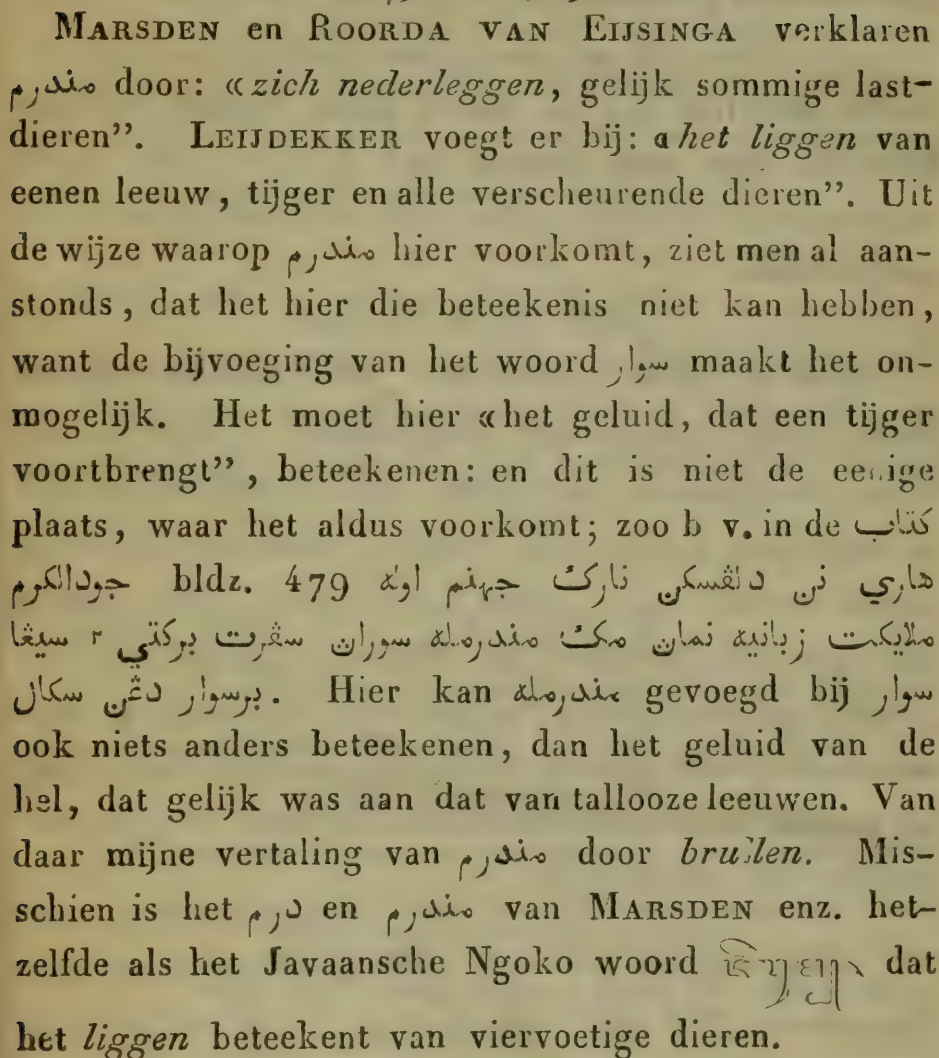 MARSDEN en ROORDA VAN EIJSINGA verklaren
مندرم door: «zich nederleggen, gelijk sommige last-
dieren”. LEIJDEKKER voegt er bij: «het liggen van
eenen leeuw, tijger en alle verscheurende dieren”. Uit
de wijze waarop مندرم hier voorkomt, ziet men al aan-
stonds, dat het hier die beteekenis niet kan hebben,
want de bijvoeging van het woord سوار maakt het on-
mogelijk. Het moet hier «het geluid, dat een tijger
voortbrengt”, beteekenen: en dit is niet de eenige
plaats, waar het aldus voorkomt; zoo b v. in de كتاب
جودالكرم bldz. 479 هاري تن دڠسكن نارك جهنم اوله
ملايكت زبانيه نمان مك مندرمله سوران سڤرت بركتي ٢ سيڠا
برسوار دڠن سكال. Hier kan مندرمله gevoegd bij سوار
ook niets anders beteekenen, dan het geluid van de
hel, dat gelijk was aan dat van tallooze leeuwen. Van
daar mijne vertaling van مندرم door brullen. Mis-
schien is het درم en مندرم van MARSDEN enz. het-
zelfde als het Javaansche Ngoko woord dat
het liggen beteekent van viervoetige dieren.